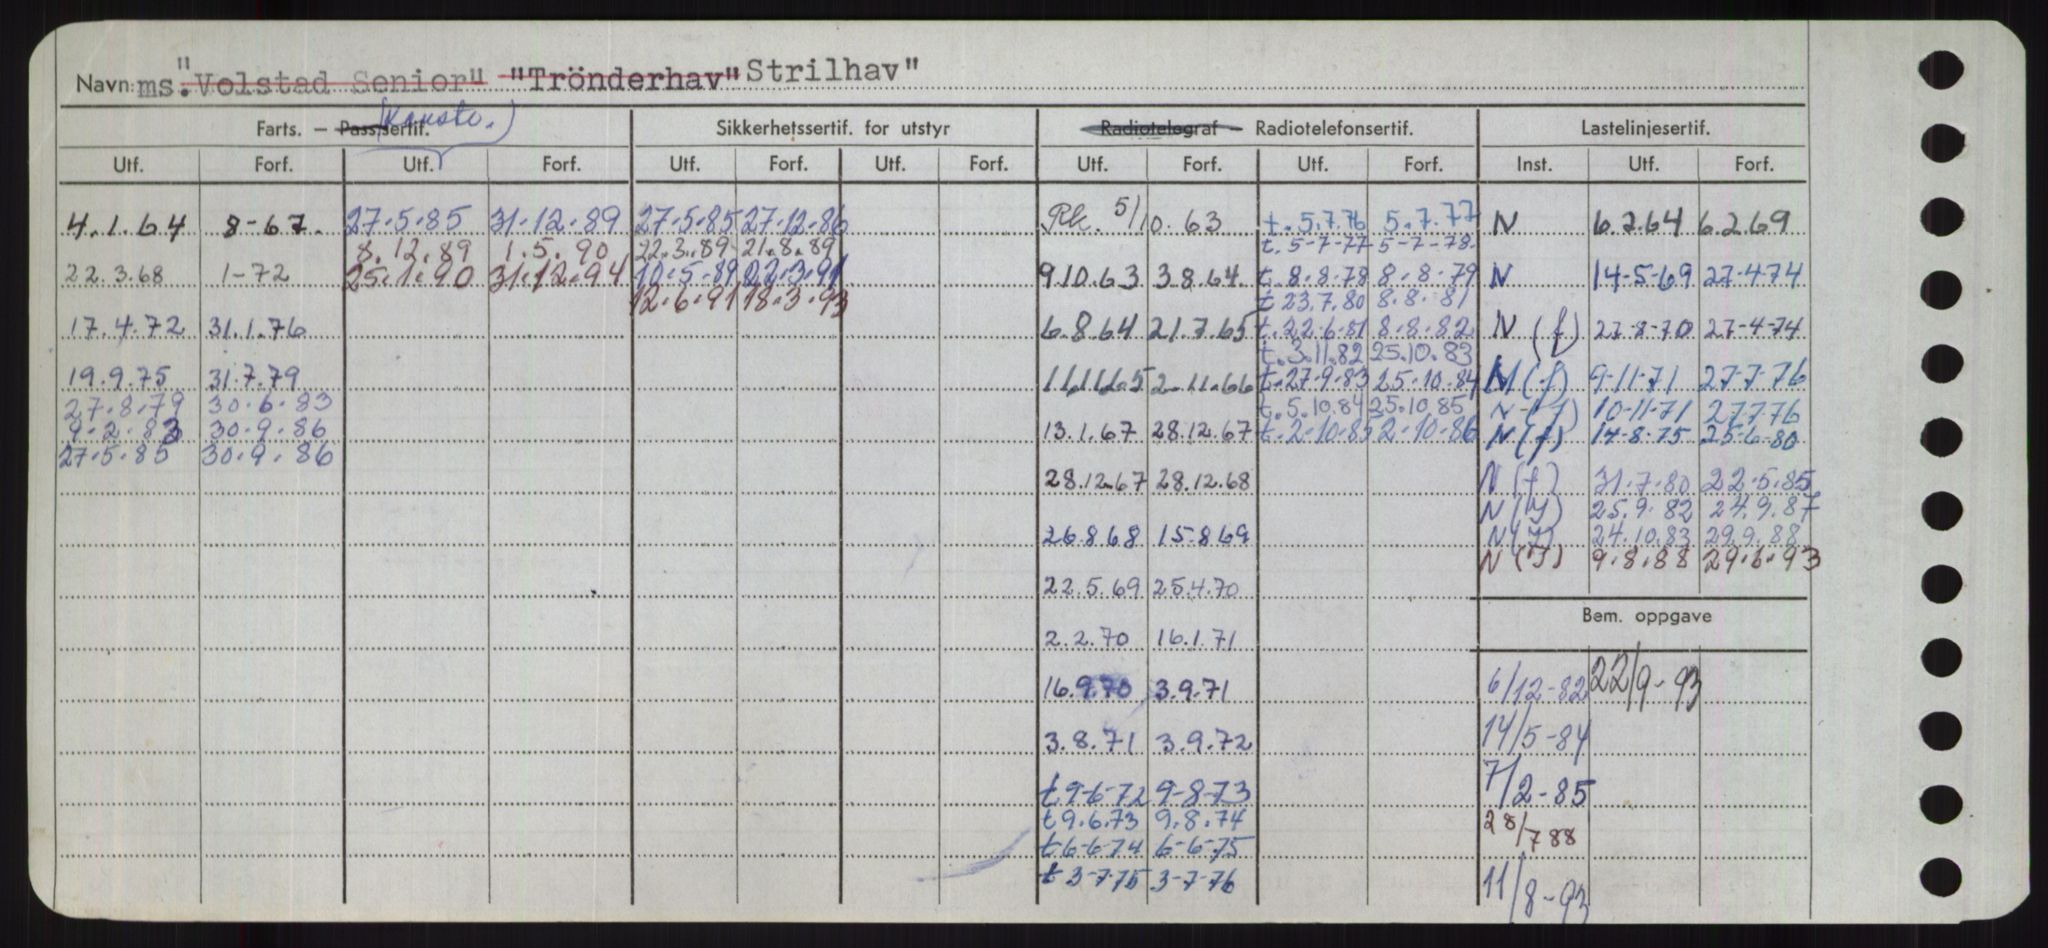 Navn: ms. "Volstad Senior" "Trönderhav" Strilhav"
Farts. — Pass.sertif. Sikkerhetssertif. for utstyr Radiotelegraf — Radiotelefonsertif. Lastelinjesertif.
Utf. Forf. Utf. Forf. Utf. Forf. Utf. Forf. Utf. Forf. Utf. Forf. Inst. Utf. Forf.
4.1.64 8-67. 27.5.85 31.12.89 27.5.85 27.12.86 Rk. 5/10.63 t. 5.7.76 5.7.77 N 6.2.64 6.2.69
8.12.89 1.5.90 22.3.89 21.8.89 t. 5-7-77 5-7-78
22.3.68 1-72 25.1.90 31.12.94 10.5.89 22.3.91 9.10.63 3.8.64. t. 8.8.78 8.8.79 N 14-5-69 27-4-74
12.6.91 18.3.93 t 23.7.80 8.8.81
17.4.72 31.1.76 6.8.64 21.7.65 t. 22.6.81 8.8.82 N (f) 27-8-70 27-4-74
t. 3.11.82 25.10.83
19.9.75 31.7.79 11.11.65 2.11.66 t. 27.9.83 25.10.84 N (f) 9-11-71 27-7-76
27.8.79 30.6.83 t. 5.10.84 25.10.85 N (f) 10-11-71 27.7.76
9.2.83 30.9.86 13.1.67 28.12.67 t. 2.10.85 2.10.86 N (f) 14-8-75 25-6-80
27.5.85 30.9.86
28.12.67 28.12.68 N (f) 31.7.80 22.5.85
N (f) 25.9.82 24.9.87
26.8.68 15.8.69 N (f) 24.10.83 29.9.88
N (f) 9.8.88 29.6.93
22.5.69 25.4.70
Bem. oppgave
2.2.70 16.1.71
16.9.70 3.9.71 6/12-82 22/9-93
3.8.71 3.9.72 14/5-84
t 9-6-72 9-8-73 7/2-85
t 9.6.73 9.8.74 28/7 88
t 6-6-74 6-6-75
t 3-7-75 3-7-76 11/8-93